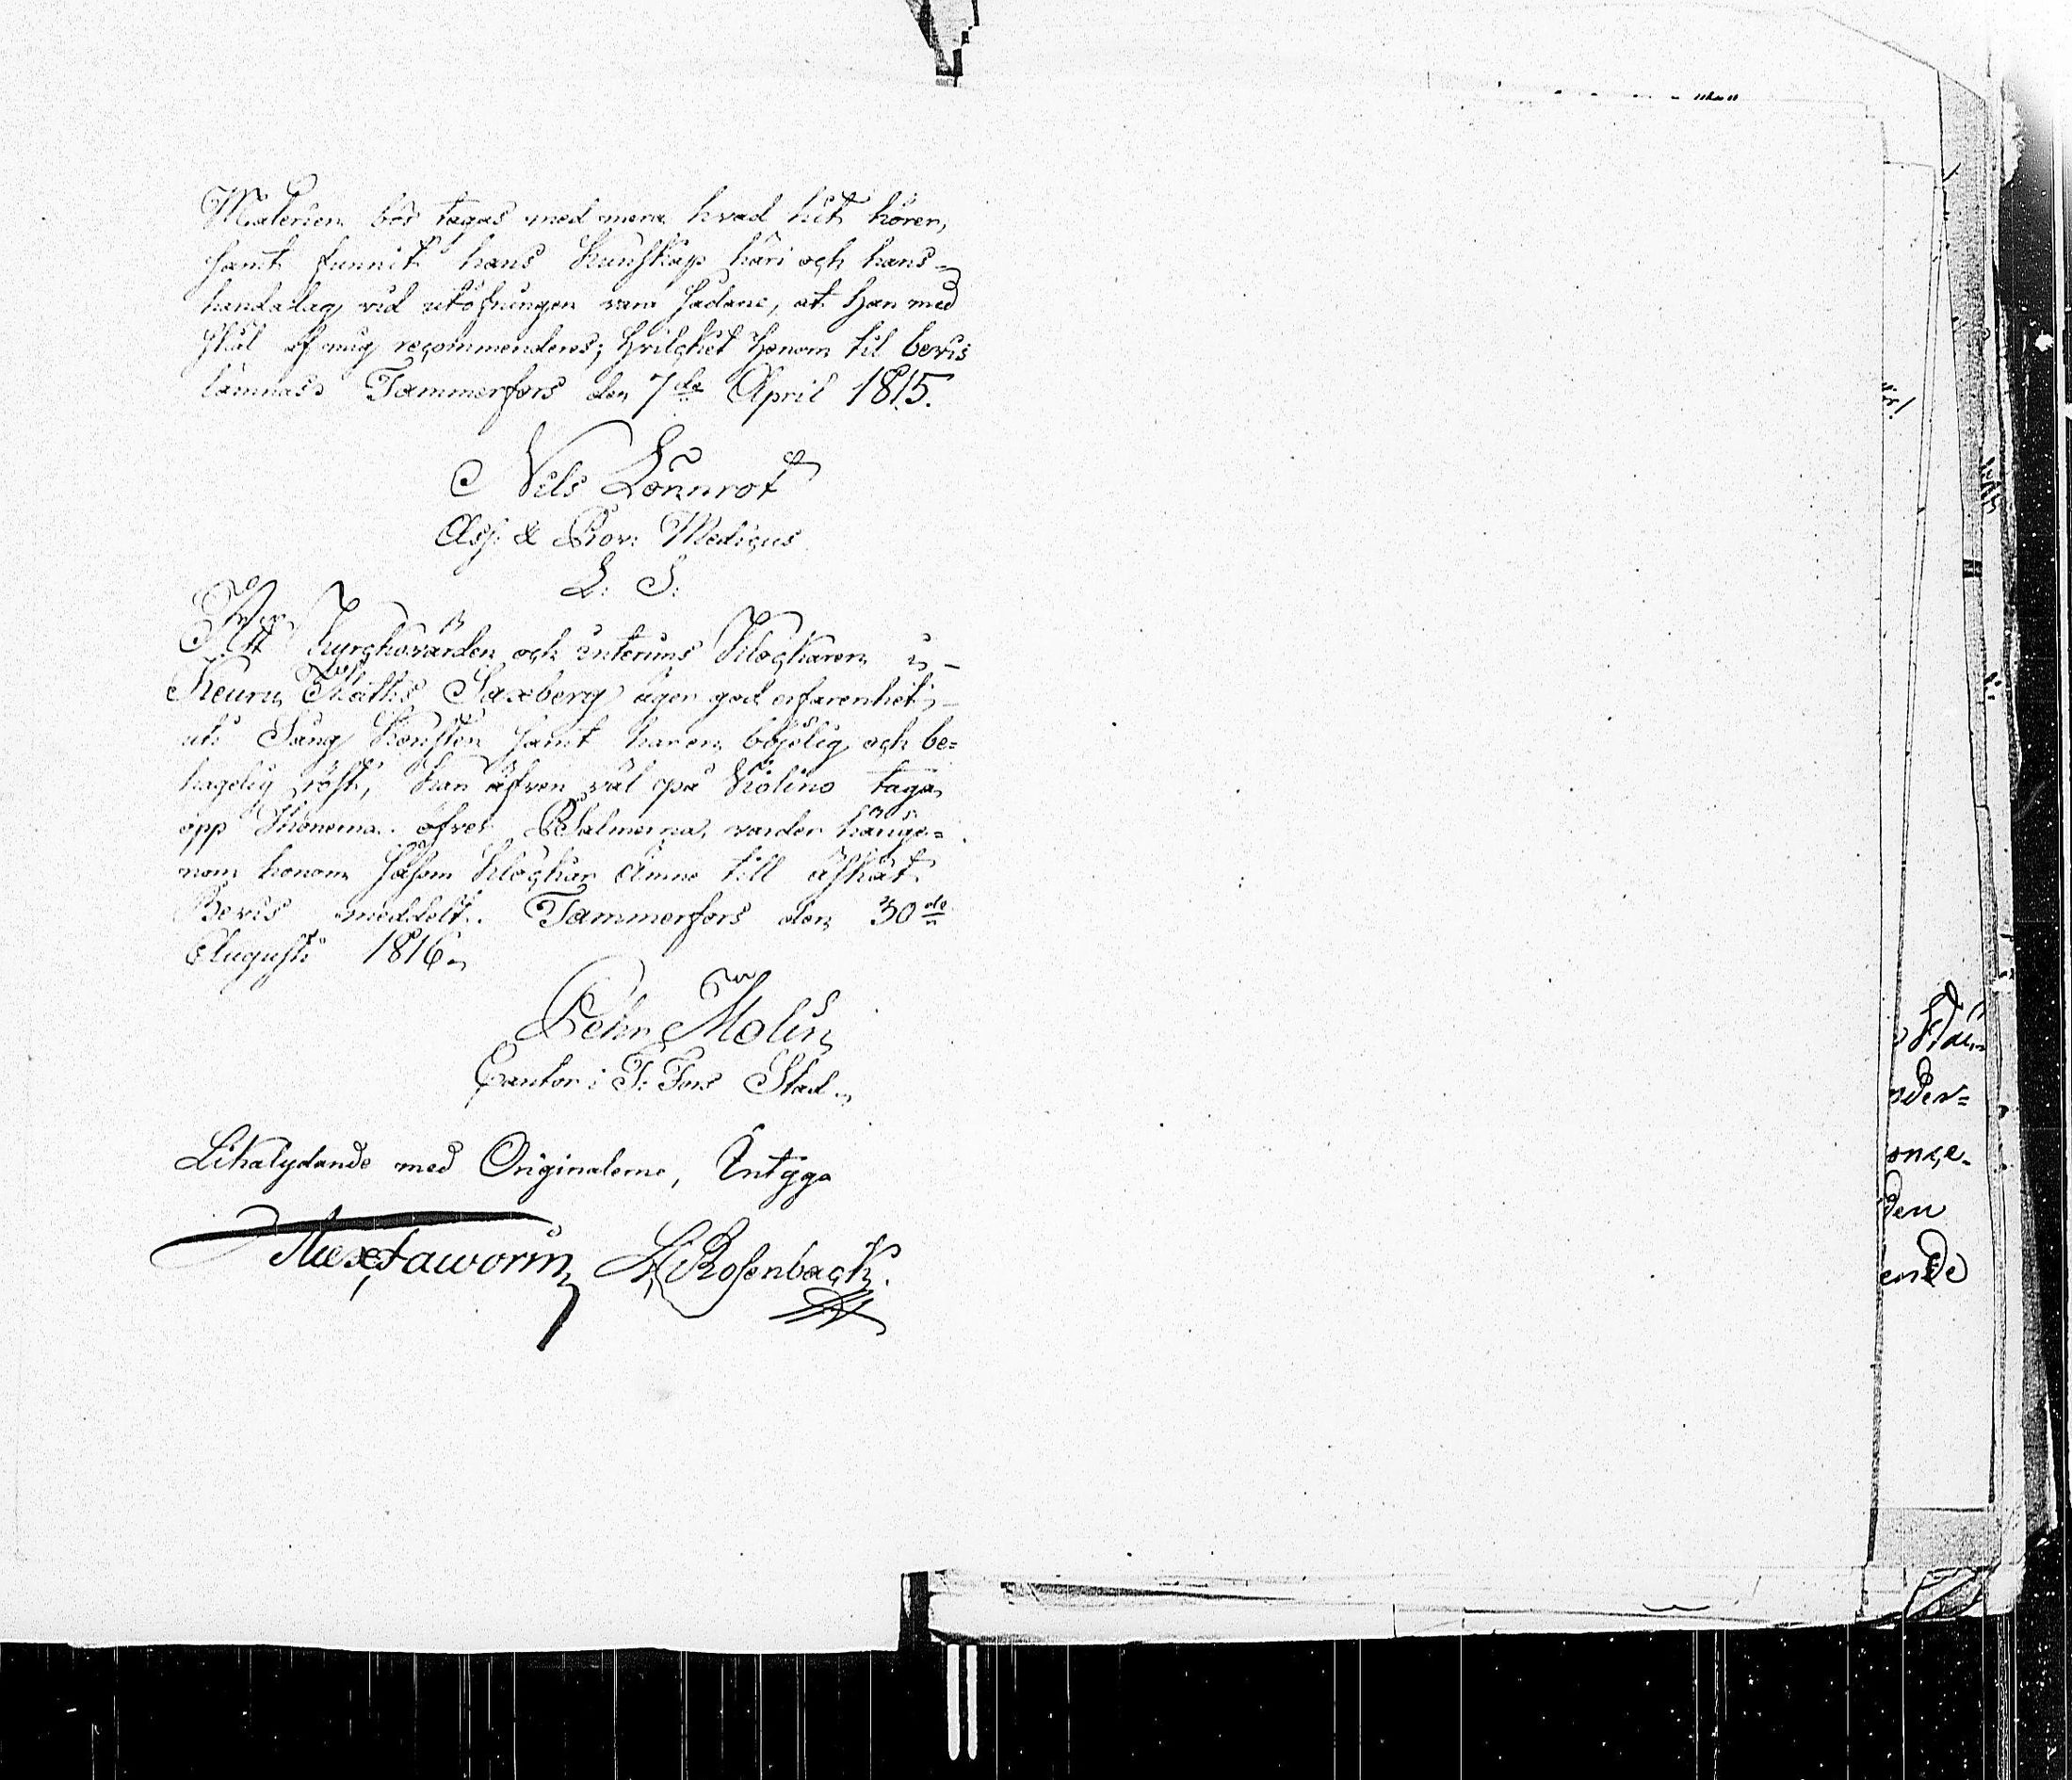 Materien bör tagas med mera hvad hit hörer,
samt funnit hans kunskap häri och hans
handalag vid utöfningen vara sådane, at Han med
skäl af mig recommenderes; hvilcket Honom til bevis
lämnas. Tammerfors den 7de April 1815.
Nils Lönnrot
Ass: & Prov: Medicus
L: S:
Att Kyrckovärden och interims Klockaren i
Keuru Maths Saxberg äger god erfarenhet
uti Sång Konsten samt har en böjelig och be=
hagelig röst, kan äfven väl på Violino taga
opp Thonerna öfver Psalmerna, varder härige=
nom honom såsom Klockar Ämne till äskat
Bevis meddelt. Tammerfors den 30de
Augusti 1816.
Pehr Molin
Cantor i T: Fors Stad
Likalydande med Originalerne, Intyga
Rosenback.
nder=
den
ende